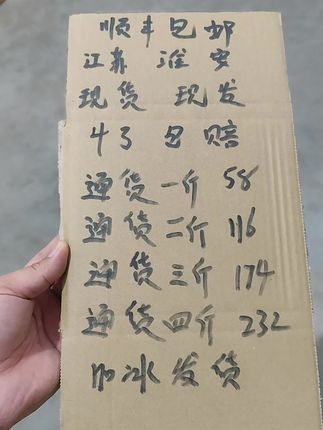 顺丰包邮
江苏 淮安
现货 现发
43 包赔
通货一斤 58
通货二斤 116
通货三斤 174
通货四斤 232
加冰发货